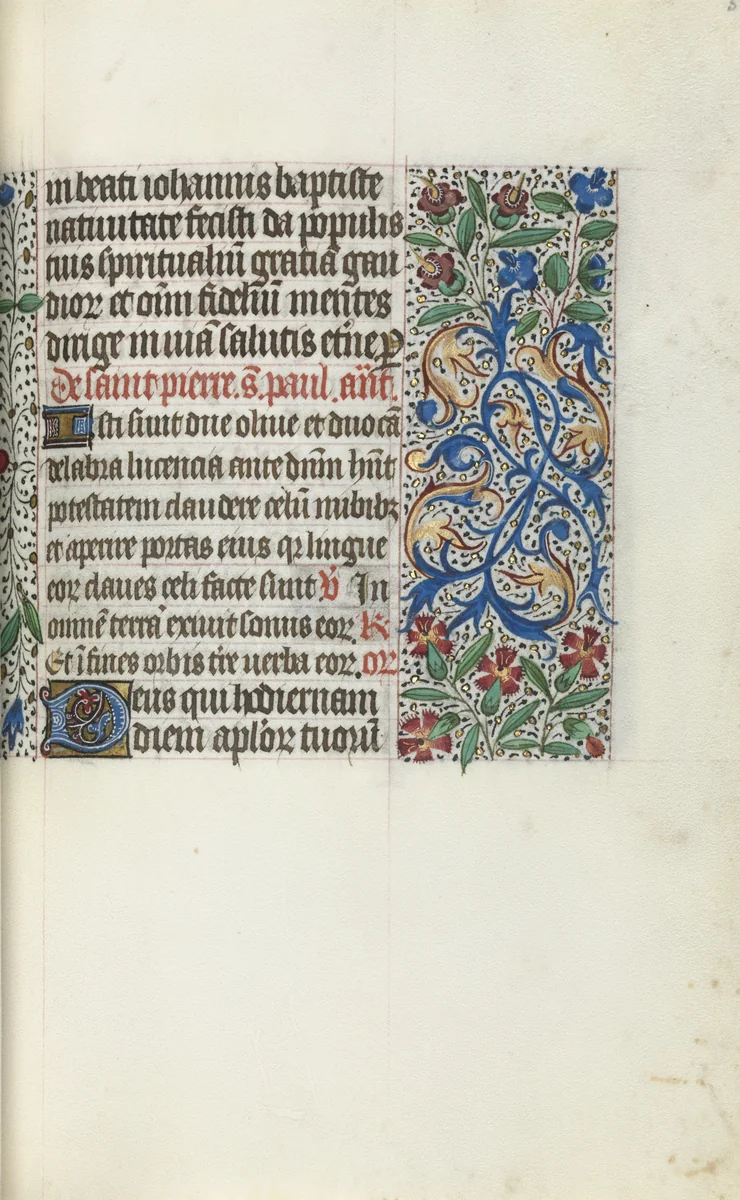 in beati iohannis baptiste
natiuitate fecisti da populis
tuis spiritualiũ gratiã gau
dioꝝ et oĩm fideliũ mentes
dirige in uiã salutis etne ꝑ
De saint pierre. s̃. paul. añt.
Isti sunt due oliue et duo cã
delabra lucencia ante dñm hñt
potestatem claudere celũ nubibꝫ
et aperire portas eius qꝛ lingue
eoꝝ claues celi facte sunt ℣ In
omnẽ terrã exiuit sonus eoꝝ. R̃
Et ĩ fines orbis tr̃e uerba eoꝝ. oꝝ
Deus qui hodiernam
diem apl'oꝝ tuoꝝũ